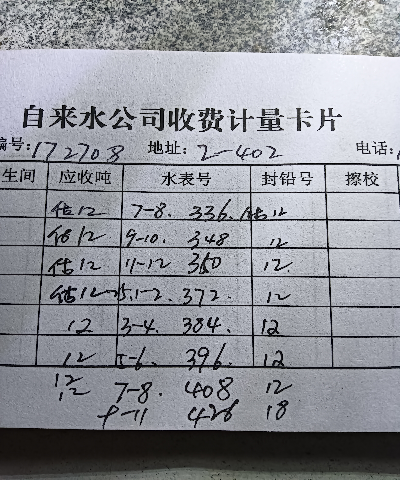 自来水公司收费计量卡片
编号:172708 地址: 2-402 电话:
生间 应收吨 水表号 封铅号 擦校
估12 7-8. 336. 估12
估12 9-10. 348 12
估12 11-12 360 12.
估12 25.1-2. 372. 12
12 3-4. 384. 12
12 5-6. 396. 12
12 7-8. 408 12
12 9-11 426 18